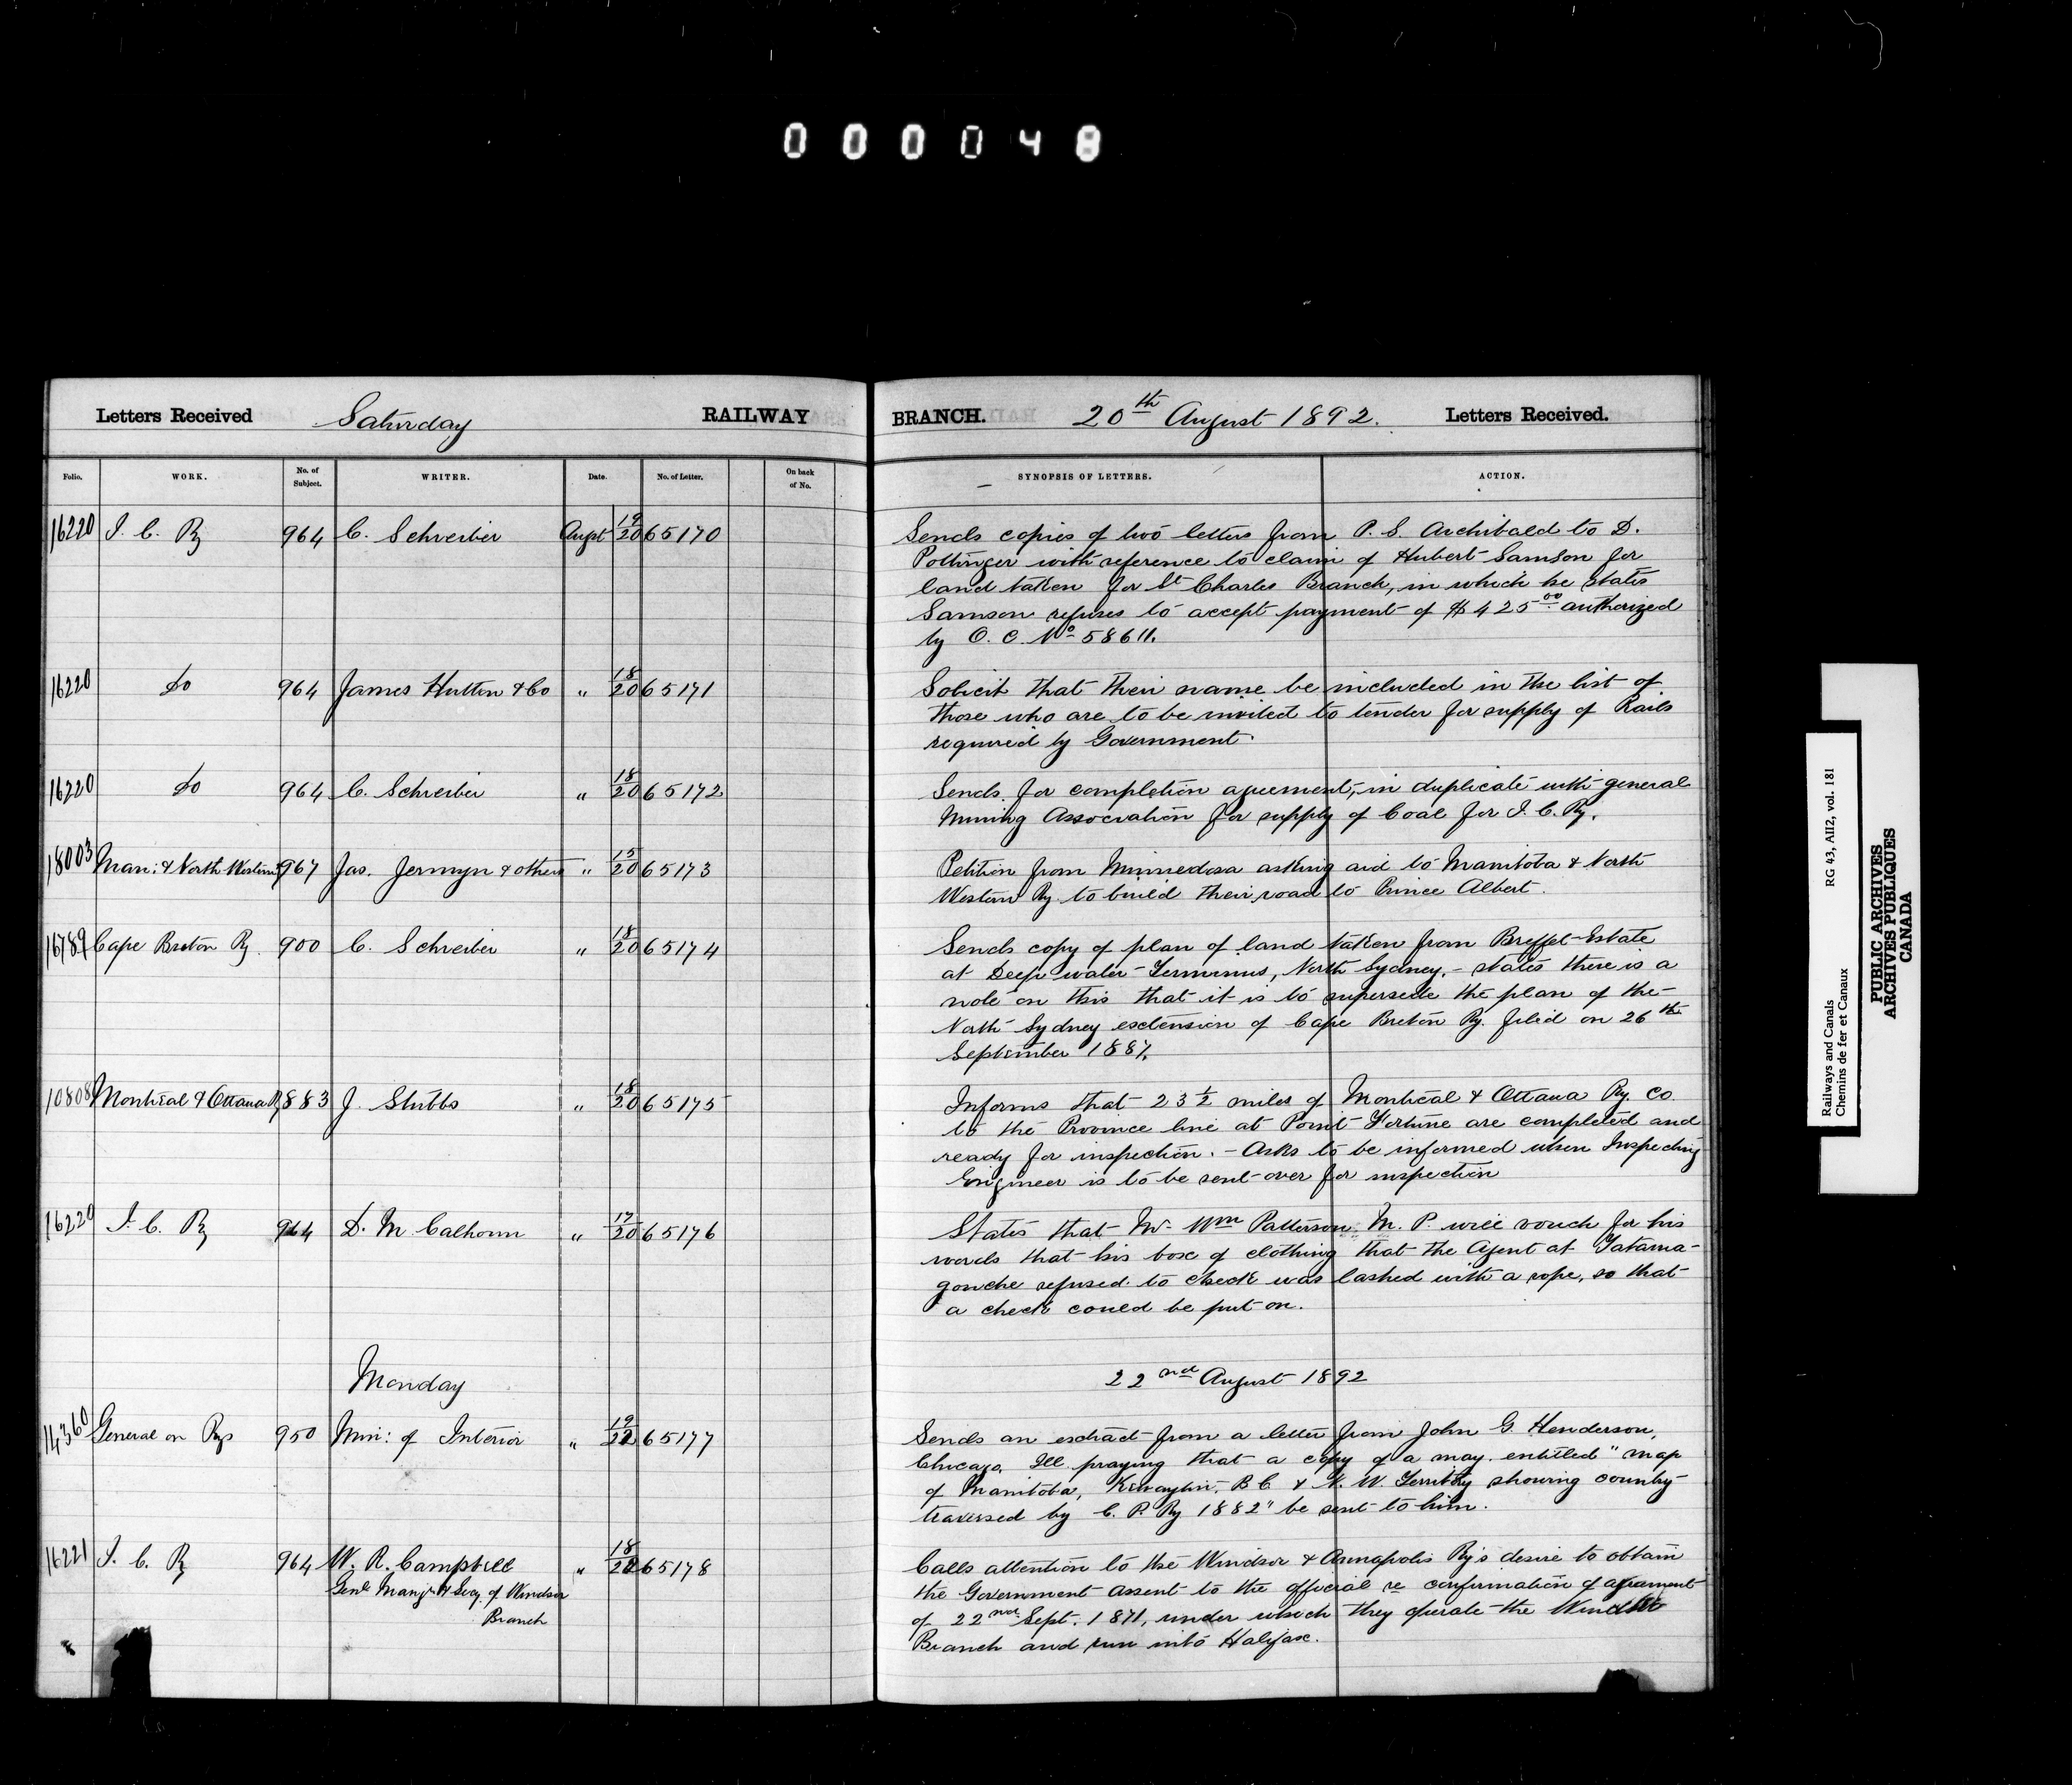 000048
Letters Received Saturday RAILWAY BRANCH. 20th August 1892. Letters Received.
Folio. WORK. No. of Subject. WRITER. Date. No. of Letter. On back of No. SYNOPSIS OF LETTERS. ACTION.
16220 I. C. Ry 964 C. Schreiber Augst 19/20 65170 Sends copies of two letters from P. S. Archibald to D.
Pottinger with reference to claim of Hubert Samson for
land taken for St Charles Branch, in which he states
Samson refuses to accept payment of $425.00 authorized
by O. C. No 58611.
16220 do 964 James Hutton & Co " 18/20 65171 Solicit that their name be included in the list of
those who are to be invited to tender for supply of Rails
required by Government.
16220 do 964 C. Schreiber " 18/20 65172 Sends for completion agreement, in duplicate with general
Mining Association for supply of Coal for I. C. Ry.
18003 Man: & North Western 967 Jas. Jermyn & others " 15/20 65173 Petition from Minnedosa asking aid to Manitoba & North
Western Ry to build their road to Prince Albert.
16789 Cape Breton Ry. 900 C. Schreiber " 18/20 65174 Sends copy of plan of land taken from Estate
at Deep water Terminus, North Sydney, - states there is a
note on this that it is to supersede the plan of the
North Sydney extension of Cape Breton Ry. filed on 26th
September 1887.
10808 Montreal & Ottawa Ry 883 J. Stubbs " 18/20 65175 Informs that 23 1/2 miles of Montreal & Ottawa Ry. Co
to the Province line at Point Fortune are completed and
ready for inspection. - Asks to be informed when Inspecting
Engineer is to be sent over for inspection
16220 I. C. Ry 964 D. M. Calhoun " 17/20 65176 States that Mr. Wm Patterson M. P. will vouch for his
words that his box of clothing that the Agent at Tatama-
gouche refused to check was lashed with a rope, so that
a check could be put on.
Monday 22nd August 1892
14360 General on Rys 950 Min: of Interior " 19/22 65177 Sends an extract from a letter from John G. Henderson,
Chicago, Ill. praying that a copy of a may entitled "map
of Manitoba, Kewaytin, B C & N. W. Territory showing country
traversed by C. P. Ry 1882" be sent to him.
16221 I. C. Ry 964 W. R. Campbell " 18/22 65178 Calls attention to the Windsor & Annapolis Ry's desire to obtain
Genl Mangr & Secy. of Windsor
Branch
the Government assent to the official re confirmation of agreement
of 22nd Sept. 1871, under which they operate the Windsor
Branch and run into Halifax.
Railways and Canals
Chemins de fer et Canaux
RG 43, AII2, vol. 181
PUBLIC ARCHIVES
ARCHIVES PUBLIQUES
CANADA